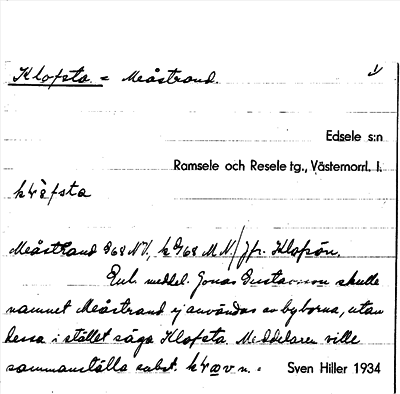 Klofsta = Meåstrand.
Edsele s:n
Ramsele och Resele tg., Västernorrl. l.
Meåstrand 968 NV, 968 M.N./Jfr. Klofsön.
Enl. meddel. Jonas Gustavsson skulle
namnet Meåstrand ej användas av byborna, utan
dessa i stället säga Klofsta. Meddelaren ville
sammanställa subst. v. n. =
Sven Hiller 1934